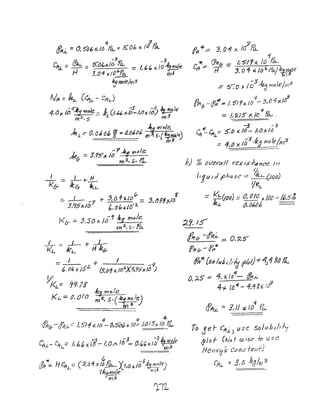 P_AL = 0.506 x 10^4 Pa = 5.06 x 10^3 Pa
C_AL = P_AL / H = 5.06x10^3 Pa / 3.04 x 10^6 Pa / kg mole/m^3 = 1.66 x 10^-3 kg mole / m^3
N_A = k_L (C_AL - C_AL)
4.0 x 10^-5 kg mole / m^2·s = k_L (1.66 x 10^-3 - 1.0 x 10^-3) kg mole / m^3
k_L = 0.0606 = 0.0606 kg mole / m^2·s·(kg mole / m^3)
k_G = 3.95 x 10^-9 kg mole / m^2·s·Pa
1/K_G = 1/k_G + H/k_L
= 1 / 3.95x10^-9 + 3.04x10^6 / 6.06x10^-2 = 3.034x10^8
K_G = 3.30 x 10^-9 kg mole / m^2·s·Pa
1/K_L = 1/k_L + 1/H k_G
= 1 / 6.06 x 10^-2 + 1 / (3.04 x 10^6)(3.95x10^-9)
1/K_L = 99.78
K_L = 0.010 kg mole / m^2·s·(kg mole / m^3)
P_AG - P_AL = 1.519 x 10^4 - 0.506x10^4 = 1.013 x 10^4 Pa
C_AL - C_AL = 1.66 x 10^-3 - 1.0 x 10^-3 = 0.66 x 10^-3 kg mole / m^3
P_A* = H C_AL = (3.04 x 10^6 Pa / (kg mole / m^3))(1.0 x 10^-3 kg mole / m^3)
P_A* = 3.04 x 10^3 Pa
C_A* = P_AG / H = 1.519 x 10^4 Pa / 3.04 x 10^6 Pa / kg mole / m^3
= 5.0 x 10^-3 kg mole/m^3
P_AG - P_A* = 1.519 x 10^4 - 3.04 x 10^3
= 1.215 x 10^4 Pa
C_A* - C_AL = 5.0 x 10^-3 - 1.0 x 10^-3
= 4.0 x 10^-3 kg mole/m^3
b) % overall resistance in
liquid phase = 1/k_L (100) / 1/K_L
= K_L (100) / k_L = 0.010 / 0.0606 x 100 = 16.5%
29.15
P_AG - P_AL / P_AG - P_A* = 0.25
P_A* (solubility plot) =
0.25 =
P_AL = 3.11 x 10^4 Pa
To get C_AL, use solubility
plot (Not wise to use
Henry's Constant)
C_AL = 3.0 kg/m^3
272